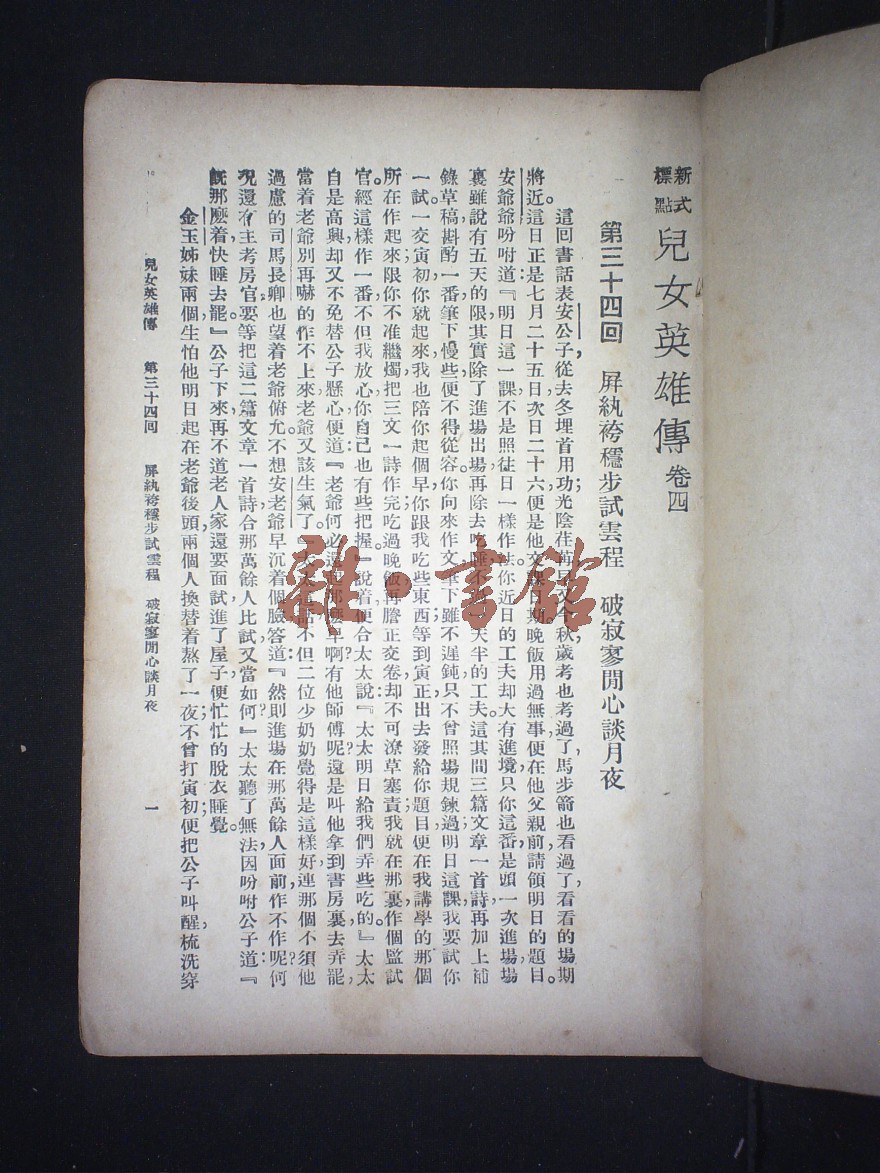 新式標點 兒女英雄傳 卷四
第三十四回 屏紈袴穩步試雲程 破寂寥閒心談月夜
這回書話表安公子，從去冬埋首用功，光陰荏苒，又秋，歲考也考過了，馬步箭也看過了，看看的場期
將近。這日正是七月二十五日，次日二十六，便是他交課日期。晚飯用過無事，便在他父親前請領明日的題目。
安爺爺吩咐道：『明日這一課，不是照往日一樣作法，你近日的工夫，却大有進境，只你這番是頭一次進場，場
裏雖說有五天的限，其實除了進場出場，再除去吃睡，不天半的工夫。這其間三篇文章，一首詩，再加上補
錄草稿，斟酌一番，筆下慢些，便不得從容。你向來作文，筆下雖不遲鈍，只不曾照場規鍊過。明日這課我要試你
一試。一交寅初，你就起來，我也陪你起個早，你跟我吃些東西，等到寅正出去，發給你題目，便在我講學的那個
所在作起來，限你不准繼燭，把三文一詩作完；吃過晚飯，再謄正交卷，却不可潦草塞責，我就在那裏作個監試
官。經這樣作一番，不但我放心，你自己也有些把握。』說着，便合太太說：『太太明日給我們弄些吃的。』太太
自是高興，却又不免替公子懸心，便道：『老爺何必還起那麼早啊？有他師傅呢，還是叫他拿到書房裏去弄罷，
當着老爺，別再嚇的作不上來，老爺又該生氣了。』太太這話，不但二位少奶奶覺得是這樣好，連那個不須他
過慮的司馬長卿，也望着老爺俯允。不想安老爺早沉着個臉答道：『然則進場在那萬餘人面前，作不作呢？何
况還有主考房官，要等把這二篇文章一首詩，合那萬餘人比試，又當如何？』太太聽了無法，因吩咐公子道：『
旣那麽着，快睡去罷。』公子下來，再不道老人家還要面試，進了屋子，便忙忙的脫衣睡覺。
金玉姊妹兩個，生怕他明日起在老爺後頭，兩個人換替着熬了一夜，不曾打寅初，便把公子叫醒，梳洗穿
兒女英雄傳 第三十四回 屏紈袴穩步試雲程 破寂寥閒心談月夜 一
雜·書館